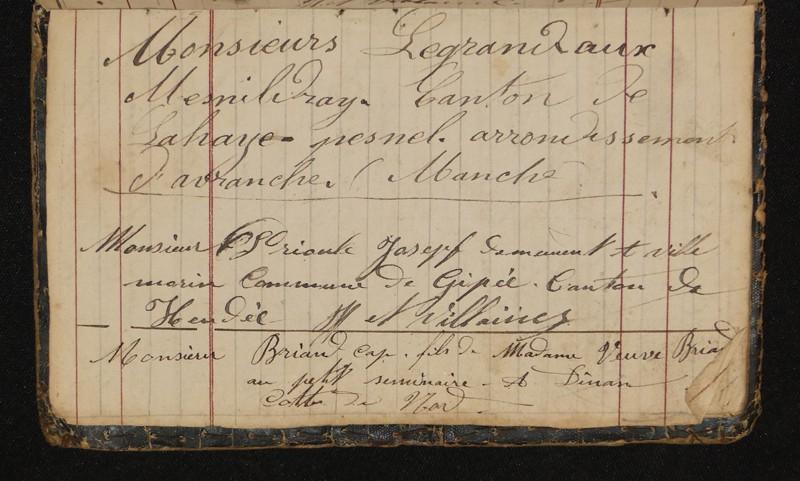 Monsieurs Legrand aux
Mesnildray. Canton de
Lahaye-pesnel. arrondissement
d'avranche. (Manche
Monsieur Joseph demeurent A ville
morin Commune de Gipée. Canton de
Hendée et Villaines
Monsieur Briand, Cap. fils de Madame Veuve Briad
au petit seminaire A Dinan
Cotte du Nord.